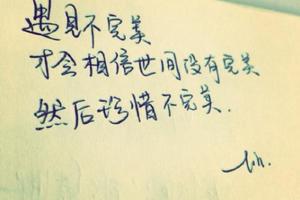 遇见不完美
才会相信世间没有完美
然后珍惜不完美.